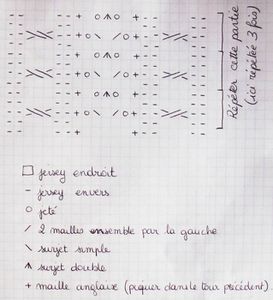 Répéter cette partie
(ici répétée 3 fois)
jersey endroit
jersey envers
jeté
2 mailles ensemble par la gauche
surjet simple
surjet double
maille anglaise (piquer dans le tour précédent)